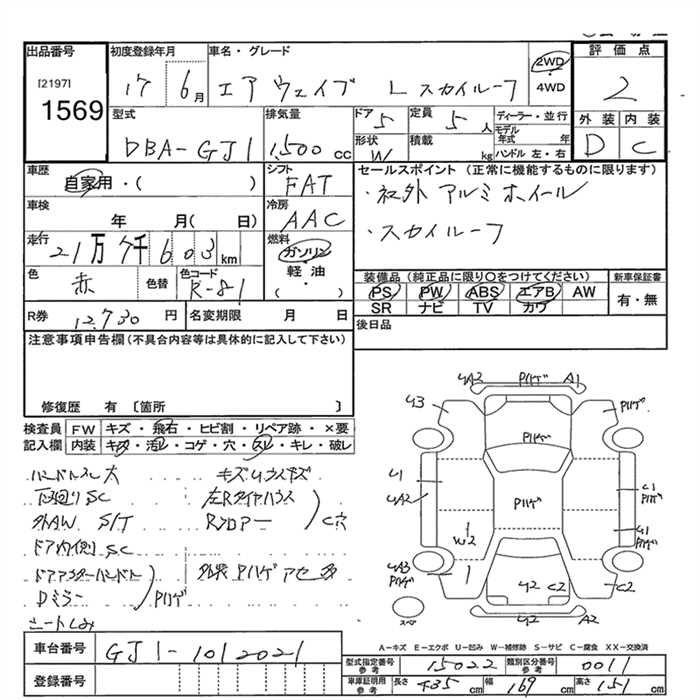 出品番号 初度登録年月 車名・グレード 評価点
[2197] 17 6月 エアウェイブ L スカイルーフ 2WD・4WD 2
1569
型式 排気量 ドア 定員 ディーラー・並行 外装 内装
DBA-GJ1 1,500cc 5 5人 モデル年式 年 D C
形状 W 積載 kg ハンドル 左・右
車歴 シフト セールスポイント(正常に機能するものに限ります)
自家用・( ) FAT ・社外アルミホイール
車検 冷房
年 月( 日) AAC ・スカイルーフ
走行 燃料
21万7千603km ガソリン・軽油・( )
色 赤 色替 色コード R-81
装備品(純正品に限り○をつけてください) 新車保証書
PS PW ABS エアB AW 有・無
SR ナビ TV カワ
R券 12,730円 名変期限 月 日 後日品
注意事項申告欄(不具合内容等は具体的に記入して下さい)
修復歴 有 [箇所 ]
検査員 FW キズ・飛石・ヒビ割・リペア跡・×要
記入欄 内装 キズ・汚レ・コゲ・穴・スレ・キレ・破レ
ハンドルスレ大
下回りSC
外AW S/T
ドア内側SC
Dミラー
シートしみ
Rフロアー
C穴
Pハゲ
U3 UA2 Pハゲ A1 Pハゲ
U1
UA2
Pハゲ
U1
Pハゲ
W2
U1
Pハゲ
UA3
Pハゲ
U2 C2 C2
A2
スペア
A-キズ E-エクボ U-凹み W-補修跡 S-サビ C-腐食 XX-交換済
車台番号 GJ1-1012021
型式指定番号 参考 15022 類別区分番号 参考 0011
登録番号
車庫証明用 参考 長さ 435cm 幅 169cm 高さ 151cm